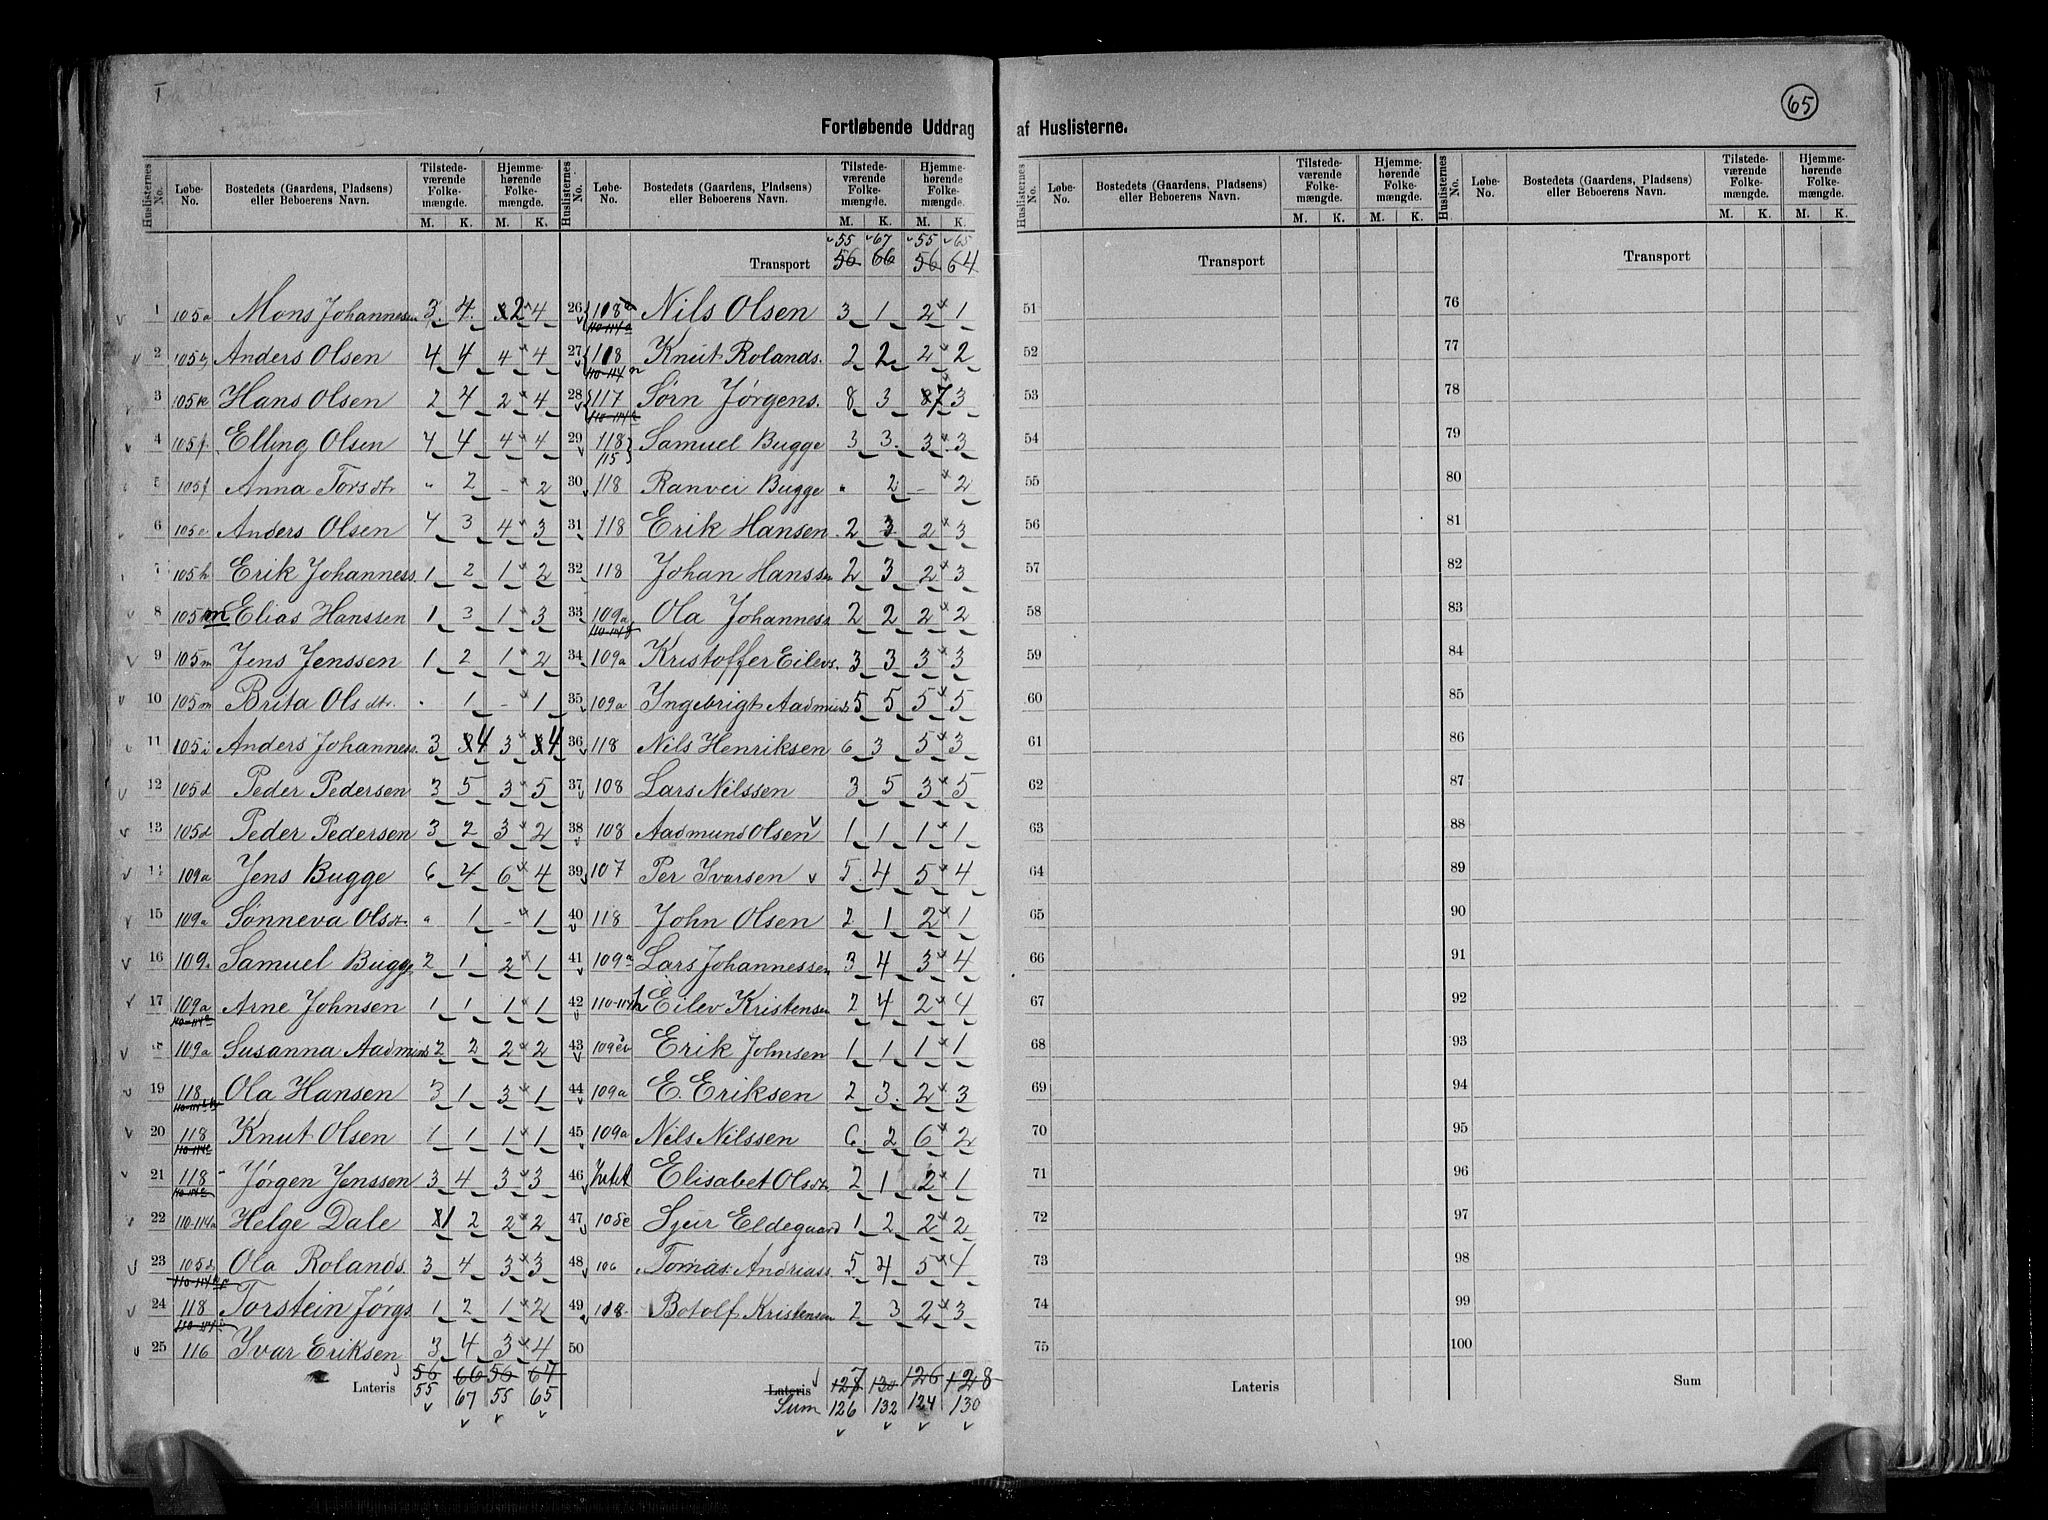 65
Fortløbende Uddrag af Huslisterne.
Huslisternes No. Løbe-No. Bostedets (Gaardens, Pladsens) eller Beboerens Navn. Tilstedeværende Folkemængde. M. K. Hjemmehørende Folkemængde. M. K.
1 105a Mons Johannesen 3 4 2 4
2 105b Anders Olsen 4 4 4 4
3 105k Hans Olsen 2 4 2 4
4 105f Elling Olsen 4 4 4 4
5 105f Anna Torsdtr " 2 - 2
6 105e Anders Olsen 4 3 4 3
7 105h Erik Johanness. 1 2 1 2
8 105m Elias Hanssen 1 3 1 3
9 105m Jens Jenssen 1 2 1 2
10 105m Brita Olsdtr. " 1 - 1
11 105i Anders Johanness. 3 4 3 4
12 105d Peder Pedersen 3 5 3 5
13 105d Peder Pedersen 3 2 3 2
14 109a Jens Bugge 6 4 6 4
15 109a Sønneva Olsdtr. " 1 - 1
16 109a Samuel Bugge 2 1 2 1
17 109a Arne Johnsen 1 1 1 1
18 109a Susanna Aadmunds 2 2 2 2
19 118 Ola Hansen 3 1 3 1
20 118 Knut Olsen 1 1 1 1
21 118 Jørgen Jenssen 3 4 3 3
22 110-114a Helge Dale 1 2 2 2
23 105d Ola Rolands. 3 4 3 3
24 118 Torstein Jørgs. 1 2 1 2
25 116 Ivar Eriksen 3 4 3 4
56 66 56 67
Lateris 55 67 55 65
Huslisternes No. Løbe-No. Bostedets (Gaardens, Pladsens) eller Beboerens Navn. Tilstedeværende Folkemængde. M. K. Hjemmehørende Folkemængde. M. K.
55 67 55 65
Transport 56 66 56 64
26 118 Nils Olsen 3 1 2 1
27 118 Knut Rolands. 2 2 2 2
28 117 Sørn Jørgens. 8 3 7 3
29 118 115 Samuel Bugge 3 3 3 3
30 118 Ranvei Bugge " 2 - 2
31 118 Erik Hansen 2 3 2 3
32 118 Johan Hanssen 2 3 2 3
33 109a Ola Johanness. 2 2 2 2
34 109a Kristoffer Eilevs. 3 3 3 3
35 109a Ingebrigt Aadmunds 5 5 5 5
36 118 Nils Henriksen 6 3 5 3
37 108 Lars Nilssen 3 5 3 5
38 108 Aadmund Olsen 1 1 1 1
39 107 Per Ivarsen 5 4 5 4
40 118 John Olsen 2 1 2 1
41 109a Lars Johannessen 3 4 3 4
42 110-114h Eilev Kristensen 2 4 2 4
43 Erik Johnsen 1 1 1 1
44 109a E. Eriksen 2 3 2 3
45 109a Nils Nilssen 6 2 6 2
46 Elisabet Olsdtr. 2 1 2 1
47 105c Sjur Eldegaard 1 2 2 2
48 106 Tomas Andreass. 5 4 5 4
49 118 Botolf Kristensen 2 3 2 3
50
Lateris 127 130 126 128
Sum 126 132 124 130
Huslisternes No. Løbe-No. Bostedets (Gaardens, Pladsens) eller Beboerens Navn. Tilstedeværende Folkemængde. M. K. Hjemmehørende Folkemængde. M. K.
Transport
51
52
53
54
55
56
57
58
59
60
61
62
63
64
65
66
67
68
69
70
71
72
73
74
75
Lateris
Huslisternes No. Løbe-No. Bostedets (Gaardens, Pladsens) eller Beboerens Navn. Tilstedeværende Folkemængde. M. K. Hjemmehørende Folkemængde. M. K.
Transport
76
77
78
79
80
81
82
83
84
85
86
87
88
89
90
91
92
93
94
95
96
97
98
99
100
Sum